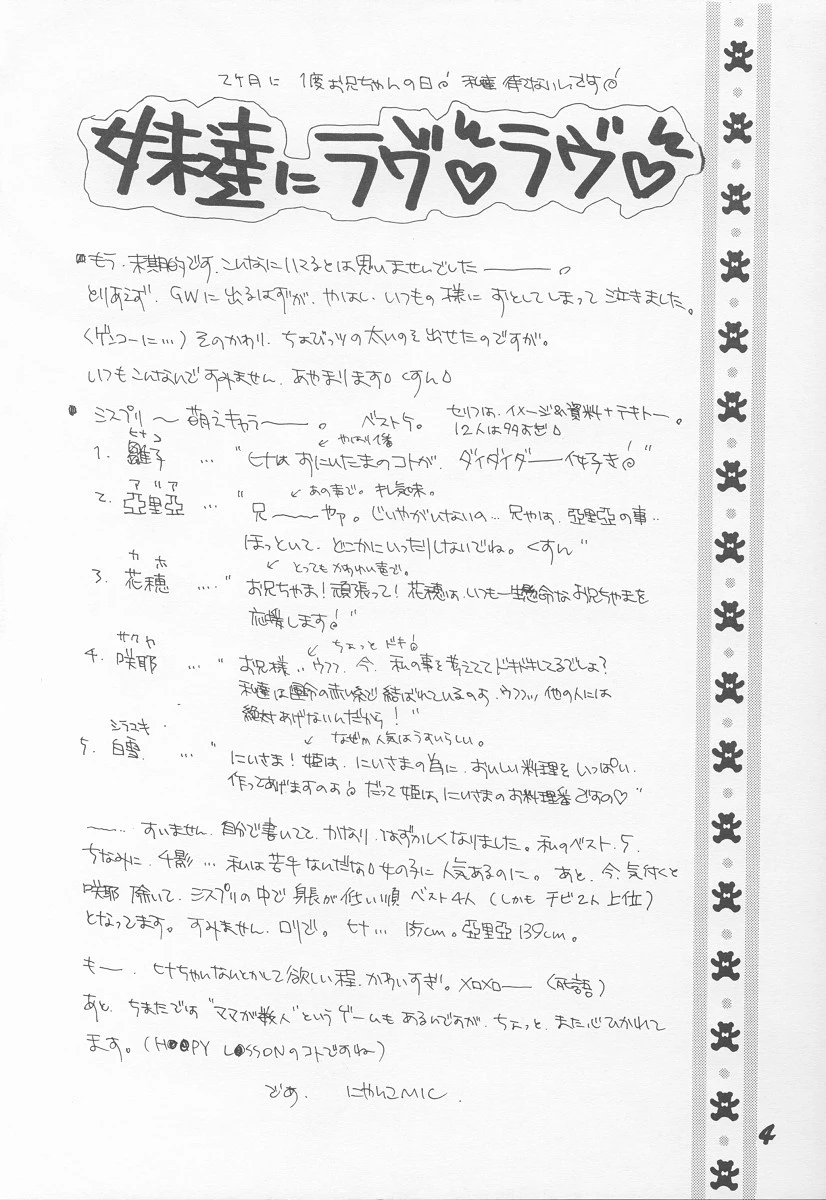 2ヶ月に 1度お兄ちゃんの日 私達 待てないんです
妹達にラヴ♡ラヴ♡
もう、末期的です。こんなににてるとは思いませんでした———。
とりあえず、GWに出るはずが、やはし、いつもの様に ずとしてしまって 泣きました。
(ゲンコーに…) そのかわり、ちょびっツの太いのを出せたのですが。
いつもこんなんですみません。あやまります。くすん。
シスプリ 〜 萌えキャラ———。 ベスト5。
セリフは、イメージ&資料+テキトー。
12人は多すぎ。
やはり1番
ヒナコ
1. 雛子 … "ヒナは おにいたまのコトが、ダイダイダー—イ好き"
あの声で。キレ気味。
アリア
2. 亞里亞 … "兄———やァ。じいやがいないの… 兄やは、亞里亞の事…
ほっといて、どこかにいったりしないでね。くすん"
とってもかわいい声で。
カホ
3. 花穂 …. "お兄ちゃま! 頑張って! 花穂は、いつも一生懸命なお兄ちゃまを
応援します"
ちょっと ドキ
サクヤ
4. 咲耶 … "お兄様‥ウフフ、今、私の事を考えててドキドキしてるでしょ?
私達は運命の赤い糸で 結ばれているのよ、ウフフッ、他の人には
絶対あげないんだから! "
なぜか 人気はうすいらしい。
シラユキ
5. 白雪 … "にいさま! 姫は、にいさまの為に、おいしい料理を いっぱい、
作ってあげますのよ だって姫は、にいさまのお料理番ですの♡"
〜… すいません、自分で書いてて、かなり、はずかしくなりました。私のベスト、5、
ちなみに、千影… 私は苦手なんだな。女の子に 人気あるのに。あと、今、気付くと
咲耶 除いて、シスプリの中で 身長が低い順 ベスト4人 (しかも チビ2人 上位)
となってます。すみません、ロリで。ヒナ… 135cm。亞里亞 139cm。
もー、ヒナちゃんなんとかして欲しい程、かわいすぎ。メロメロー— (死語)
あと、ちまたでは "ママが数人" というゲームも あるんですが、ちょっと、また心ひかれて
ます。(H●●PY L●SSONのコトですね)
でわ、 にゃんこMIC.
4